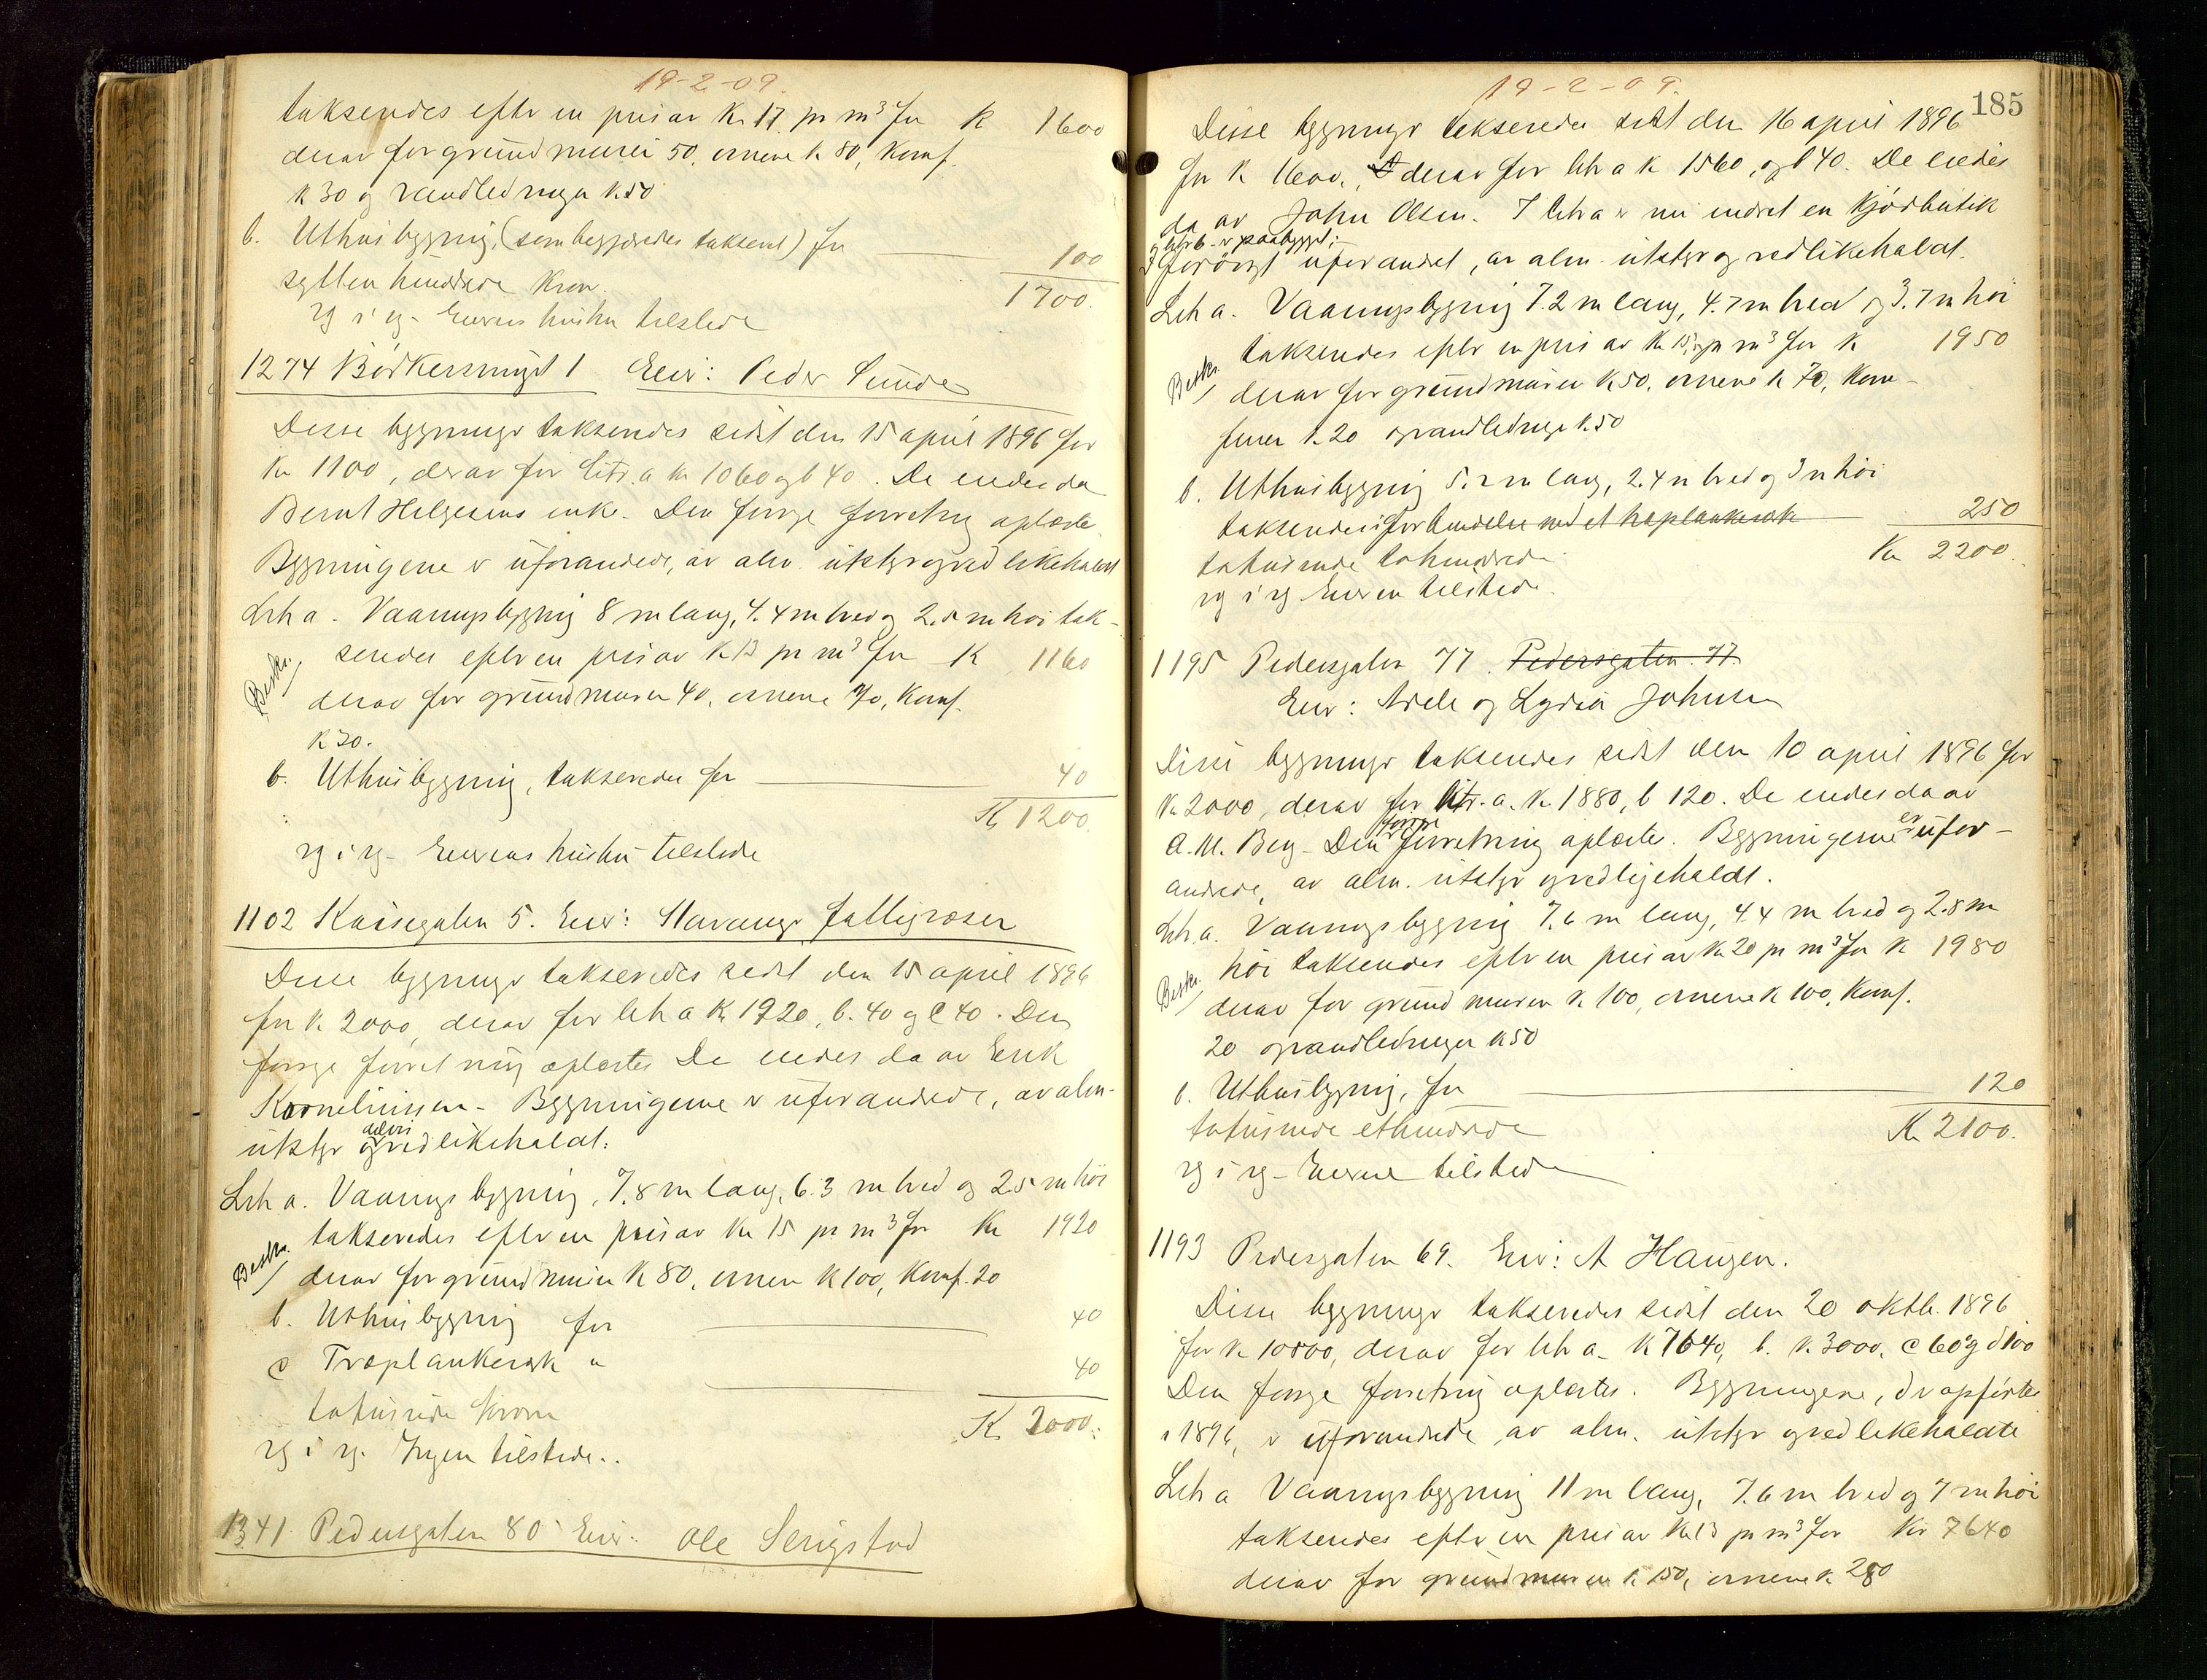 19-2-09.
takseredes efter en pris av Kr. 17 pr m³ for K 1600
derav for grundmuren 50, ovnene k 80, Komf.
k 30 og vandledningen k. 50
b. Uthusbygning, (som begjæredes takseret) for 100
sytten hundrede Kroner. 1700.
rg i rg - Eierens hustru tilstede
1274 Bødkersmuget 1 Eier: Peder Sunde
Disse bygninger takseredes sidst den 15 april 1896 for
Kr 1100, derav for Litr. a kr 1060 og b 40. De eiedes da
Bernt Helgesens enke. Den forrige forretning oplæstes
Bygningene er uforandrede, av alm. utstyr og vedlikeholdt
Litr a. Vaaningsbygning 8 m lang, 4.4 m bred og 2.5 m høi tak-
seredes efter en pris av K 13 pr m³ for K 1160
Beskr.
derav for grundmuren 40, ovnene 70, Komf.
K 30.
b. Uthusbygning, takseredes for 40
K 1200
rg i rg - Eierens hustru tilstede
1102 Karsegaten 5. Eier: Stavanger Fattigvæsen
Disse bygninger takseredes sidst den 15 april 1896
for k. 2000, derav for litr a K 1920, b. 40 og c 40. Den
forrige forretning oplæstes De eiedes da av Erik
Korneliussen - Bygningene er uforandrede, av alm-
utstyr og delvis vedlikeholdt.
Litr a. Vaaningsbygning, 7.8 m lang, 6.3 m bred og 2.5 m høi
takseredes efter en pris av Kr 15 pr m³ for Kr 1920
Beskr.
derav for grundmuren K 80, ovnen K 100, Komf. 20
b. Uthusbygning for 40
c Træplankeverk " 40
totusinde Kroner K 2000.
rg i rg. Ingen tilstede..
1341 Pedersgaten 80 Eier: Ole Serigstad
185
19-2-09.
Disse bygninger takseredes sidst den 16 april 1896
for K 1600, derav for litr a k 1560, og b 40. De eiedes
da av John Olsen. I litr a er nu indret en Kjødbutik
og litr b er paabygget;
forøvrigt uforandret, av alm. utstyr og vedlikeholdt.
Litr a. Vaaningsbygning 7.2 m lang, 4.7 m bred og 3.7 m høi
takseredes efter en pris av Kr 15,- pr m³ for K 1950
Beskr.
derav for grundmuren K 50, ovnene k 70, Kom-
furen k. 20 og vandledninger k. 50
b. Uthusbygning 5.2 m lang, 2.4 m bred og 3 m høi
takseredes i forbindelse med et træplankeverk 250
totusinde tohundrede Kr 2200.
rg i rg Eieren tilstede.
1195 Pedersgaten 77. Pedersgaten. 77.
Eier: Adele og Lydia Johnsen
Disse bygninger takseredes sidst den 10 april 1896 for
Kr 2000, derav for litr. a. K. 1880, b 120. De eiedes da av
A. M. Berg - Den forrige forretning oplæstes. Bygningerne er ufor-
andrede, av alm. utstyr og vedligeholdt.
Litr. a. Vaaningsbygning 7.6 m lang, 4.4 m bred og 2.8 m
høi takseredes efter en pris av Kr 20 pr m³ for K 1980
Beskr.
derav for grundmuren k 100, ovnene k 100, Komf.
20 og vandledningen k 50
b. Uthusbygning, for 120
totusinde ethundrede K 2100.
rg i rg - Eierne tilstede
1193 Pedersgaten 69. Eier: A Haugen.
Disse bygninger takseredes sidst den 20 oktb. 1896
for k 10800, derav for litr a - K 7640, b. K. 3000, c 60 og d 100
Den forrige forretning oplæstes. Bygningene, der opførtes
i 1896, er uforandrede av alm. utstyr og vedlikeholdte
Litr a Vaaningsbygning 11 m lang, 7.6 m bred og 7 m høi
takseredes efter en pris av Kr 13 pr m³ for Kr 7640
derav for grundmuren k 150, ovnene k. 280